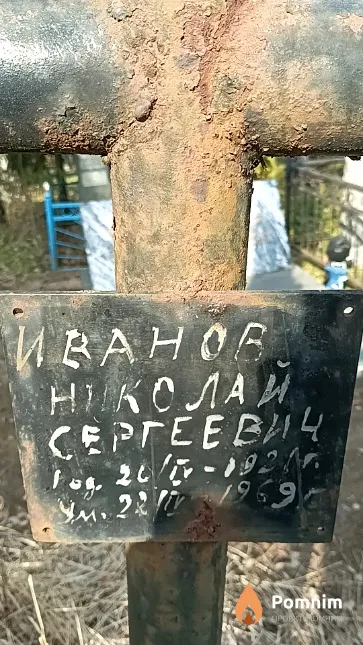 ИВАНОВ
НИКОЛАЙ
СЕРГЕЕВИЧ
Год. 20/IV-192 г.
Ум. 22/IV-1969 г
Pomnim